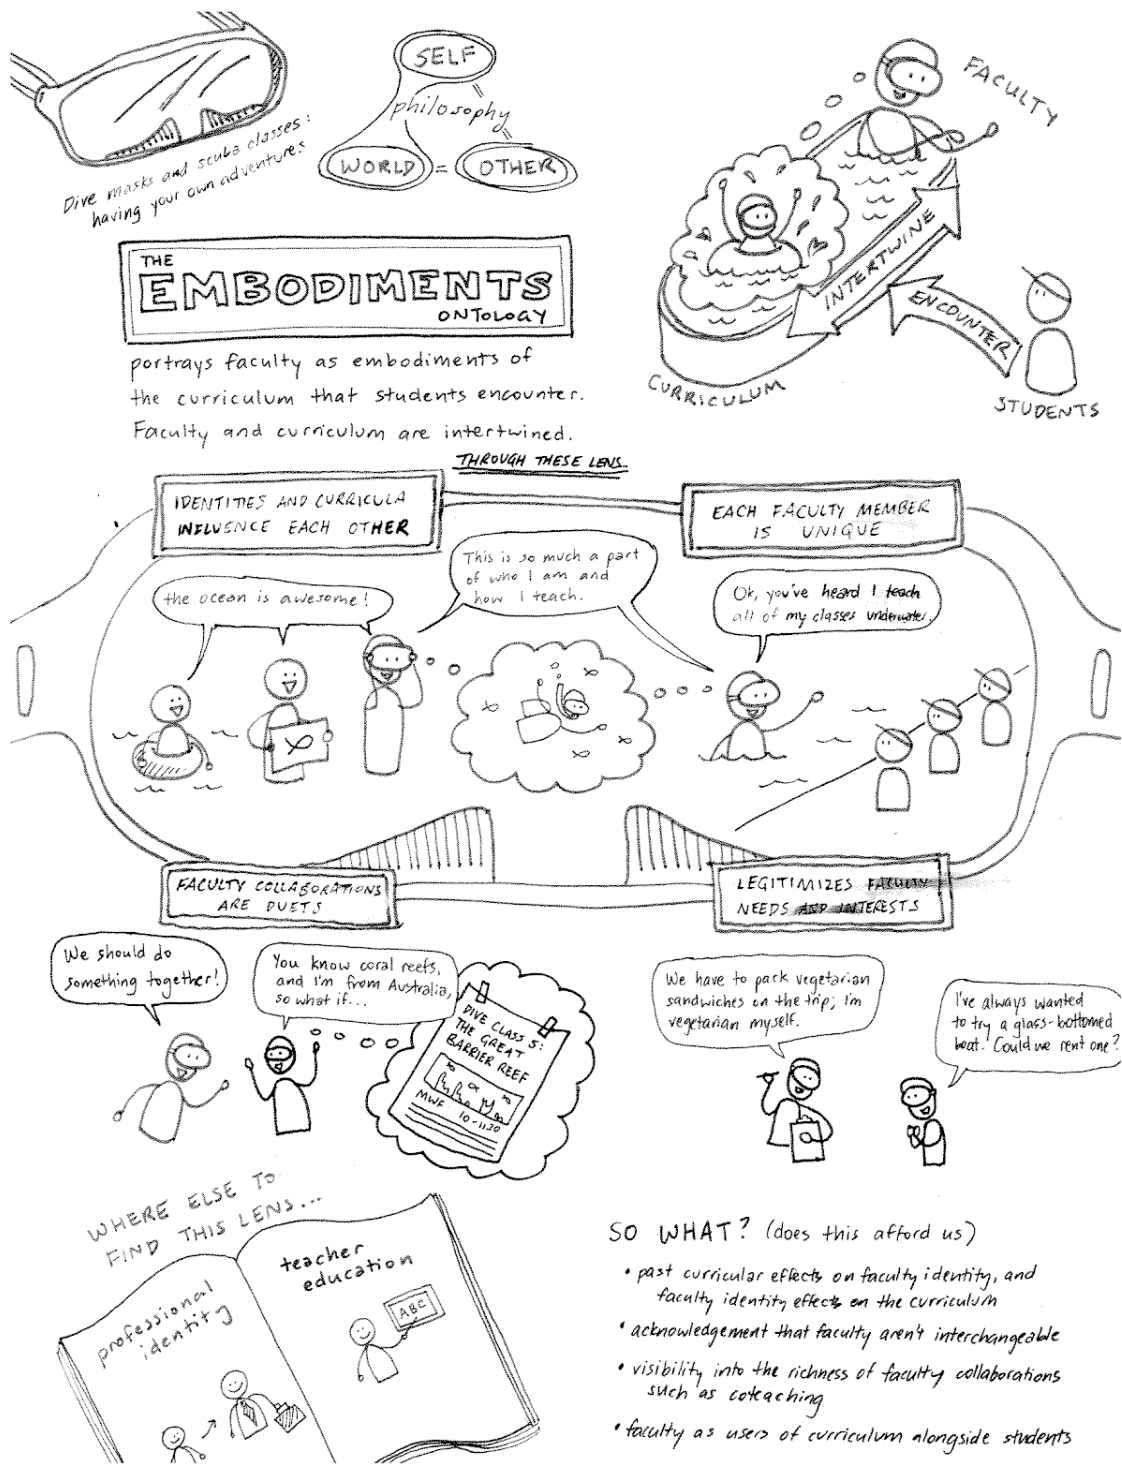 Dive masks and scuba classes:
having your own adventures
SELF
philosophy
WORLD = OTHER
FACULTY
INTERTWINE
ENCOUNTER
CURRICULUM
STUDENTS
THE
EMBODIMENTS
ONTOLOGY
portrays faculty as embodiments of
the curriculum that students encounter.
Faculty and curriculum are intertwined.
THROUGH THESE LENS
IDENTITIES AND CURRICULA
INFLUENCE EACH OTHER
EACH FACULTY MEMBER
IS UNIQUE
the ocean is awesome!
This is so much a part
of who I am and
how I teach.
Ok, you've heard I teach
all of my classes underwater.
FACULTY COLLABORATIONS
ARE DUETS
LEGITIMIZES FACULTY
NEEDS AND INTERESTS
We should do
something together!
You know coral reefs,
and I'm from Australia,
so what if...
DIVE CLASS 5:
THE GREAT
BARRIER REEF
MWF 10-1130
We have to pack vegetarian
sandwiches on the trip; I'm
vegetarian myself.
I've always wanted
to try a glass-bottomed
boat. Could we rent one?
WHERE ELSE TO
FIND THIS LENS...
professional
identity
teacher
education
ABC
SO WHAT? (does this afford us)
• past curricular effects on faculty identity, and
faculty identity effects on the curriculum
• acknowledgement that faculty aren't interchangeable
• visibility into the richness of faculty collaborations
such as coteaching
• faculty as users of curriculum alongside students